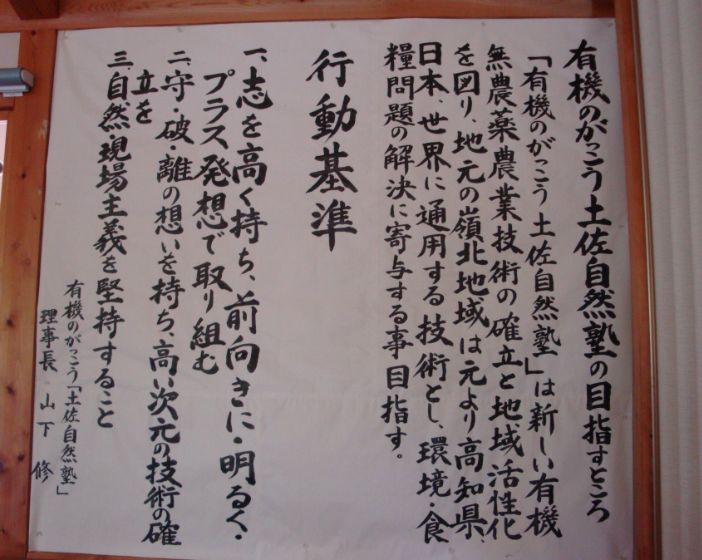 有機のがっこう土佐自然塾の目指すところ
「有機のがっこう土佐自然塾」は新しい有機
無農薬農業技術の確立と地域活性化
を図り、地元の嶺北地域は元より高知県、
日本、世界に通用する技術とし、環境・食
糧問題の解決に寄与する事目指す。
行動基準
一、志を高く持ち、前向きに・明るく・
プラス発想で取り組む
二、守・破・離の想いを持ち、高い次元の技術の確
立を
三、自然現場主義を堅持すること
有機のがっこう「土佐自然塾」
理事長 山下 修